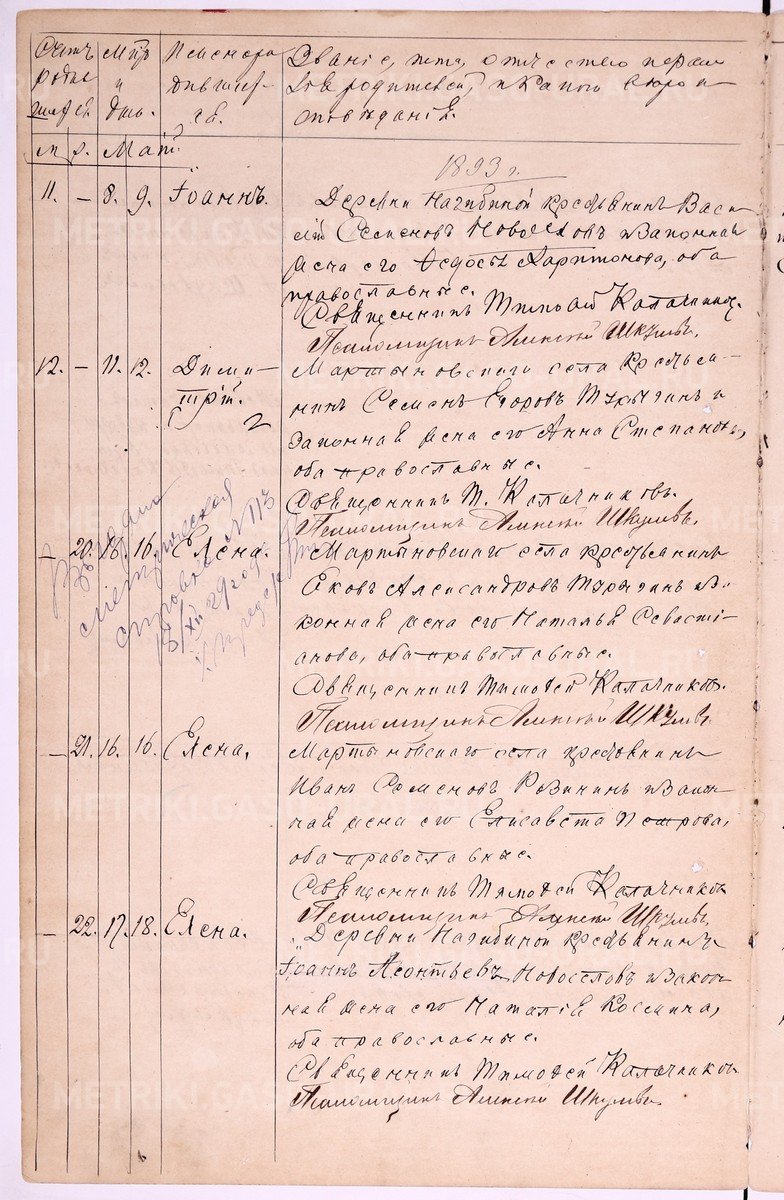 Счетъ Мѣс. Имена ро- Званіе, имя, отчество и фами-
родив- и дившихъ- лія родителей, и какого вѣро-
шихся день. ся. исповѣданія.
м. р. Май.
1893 г.
11. — 8. 9. Іоаннъ. Деревни Нагибиной крестьянинъ Васи-
лій Семеновъ Новоселовъ и законная
жена его Ѳедосья Харитонова, оба
православные.
Священникъ Тимоѳей Калачниковъ.
Псаломщикъ Алексій Шкулевъ.
12. — 11. 12. Дими- Мартыновскаго села крестья-
трій. нинъ Семенъ Егоровъ и
2 законная жена его Анна Степанова,
оба православные.
Священникъ Т. Калачниковъ.
Псаломщикъ Алексій Шкулевъ.
— 20. 16. Елена. Мартыновскаго села крестьянинъ
Яковъ Александровъ и за-
конная жена его Наталья Севасті-
анова, оба православные.
Священникъ Тимоѳей Калачниковъ.
Псаломщикъ Алексій Шкулевъ.
Выдана
метрическая
справка № 113
18/XII 29 год
— 21. 16. 16. Елена. Мартыновскаго села крестьянинъ
Иванъ Семеновъ и закон-
ная жена его Елисавета Петрова,
оба православные.
Священникъ Тимоѳей Калачниковъ
Псаломщикъ Алексій Шкулевъ.
— 22. 17. 18. Елена. Деревни Нагибиной крестьянинъ
Іоаннъ Леонтьевъ Новоселовъ и закон-
ная жена его Наталія Космина,
оба православные.
Священникъ Тимоѳей Калачниковъ
Псаломщикъ Алексій Шкулевъ.